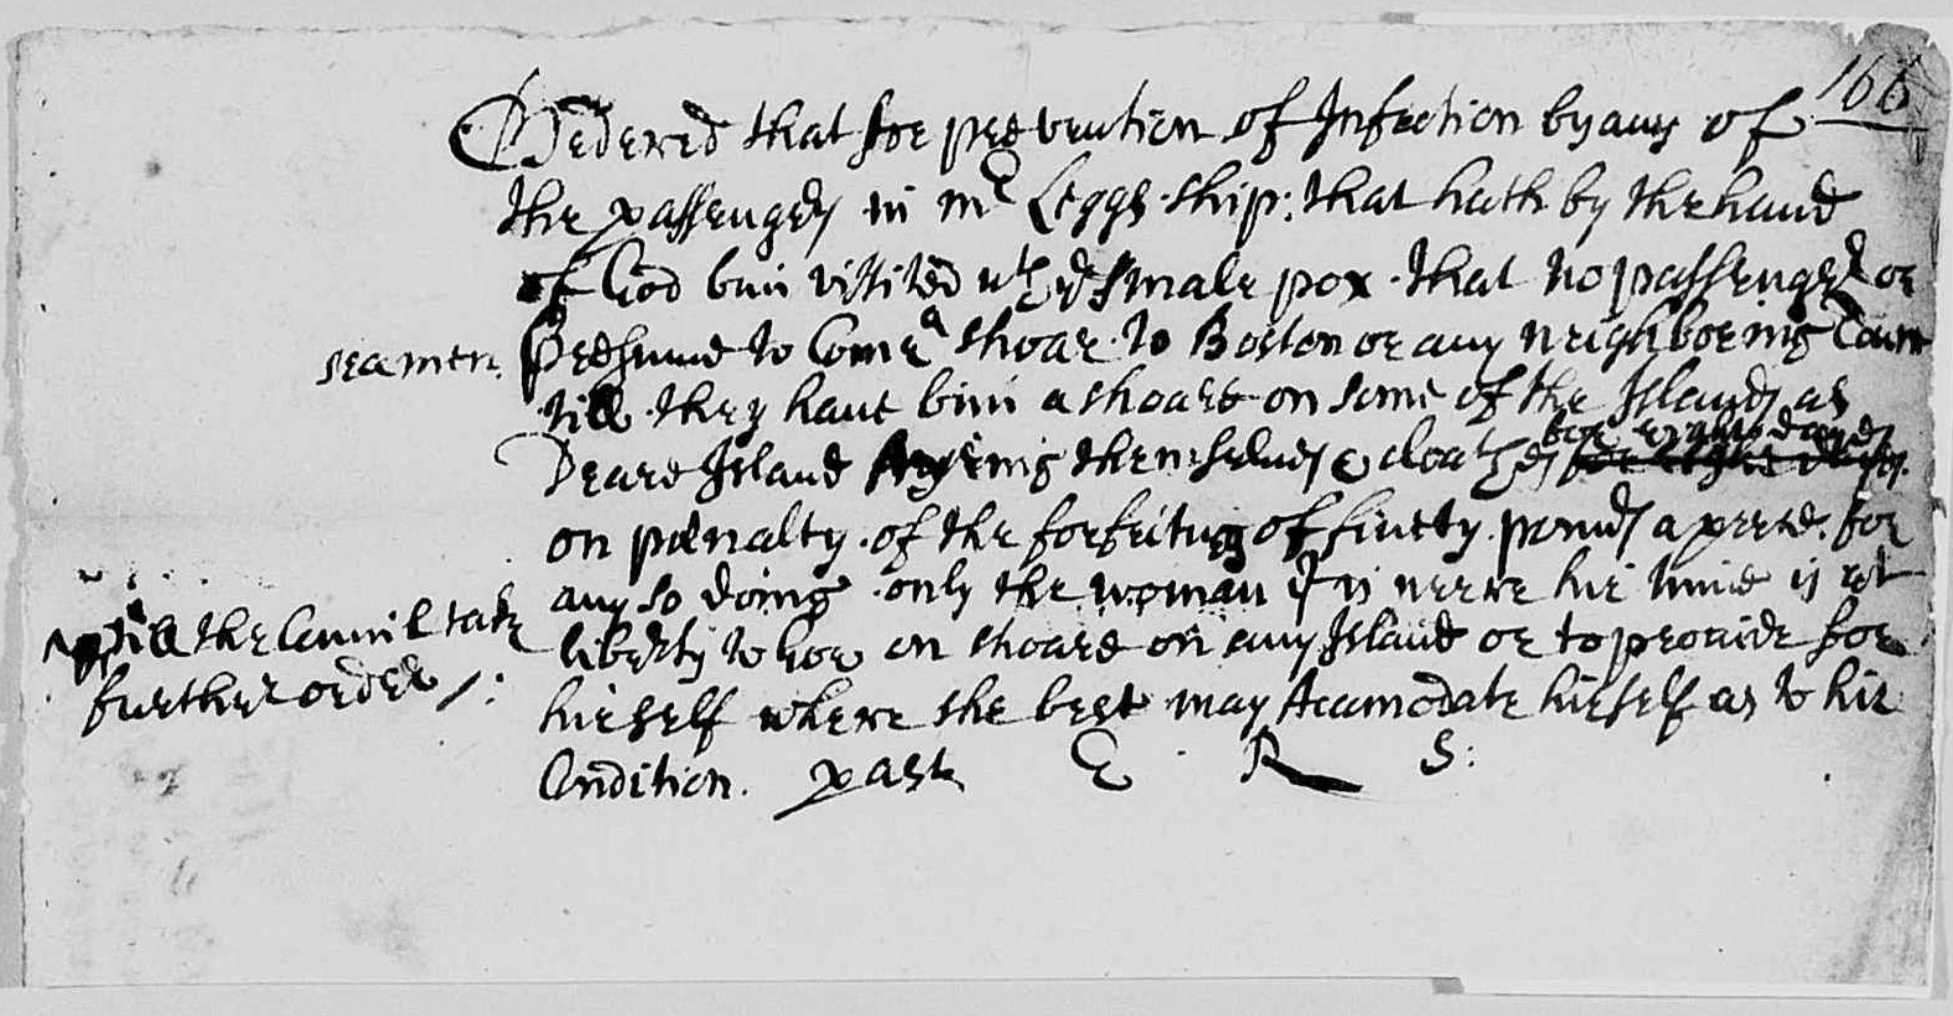 166
Ordered that for prevention of Infection by any of
the passengers in mr Leggs ship: that hath by the hand
of God bin vissited wth ye smale pox. that no passenger or
seamen. Presume to Come a shoar to Boston or any neighboring Toune
till they haue bin a shoare on some of the Islands as
for eight dayes
Deare Island Ayring themselues & cloathes for eight dayes
on pænalty of the forfeiture of fiuety pounds a peece. for
any so doing. only the woman yt is neere hir time is at
liberty to goe on shoare on any Island or to provide for
till the Councill take
further order /:
hirself where she best may Acamodate hirself as to hir
Condition. past E R S: